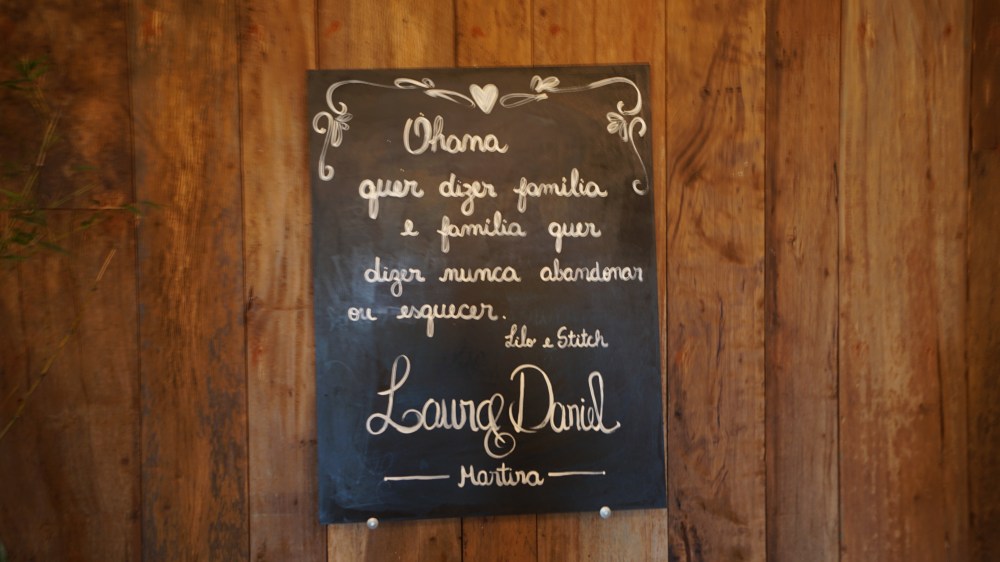 Óhana
quer dizer familia
e familia quer
dizer nunca abandonar
ou esquecer.
Lilo e Stitch
Laura & Daniel
Martina